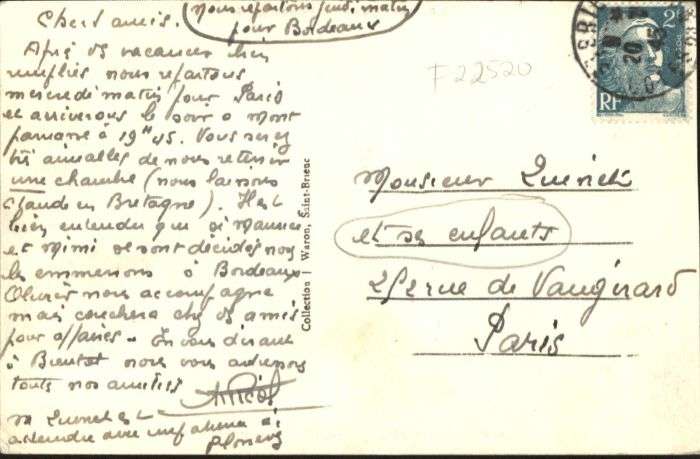 Nous repartons jeudi matin
pour Bordeaux
Chers amis.
Après vacances bien
remplies nous repartons
mercredi matin pour Paris
et arriverons le soir à Mont
parnasse à 19H45. Vous seriez
très aimables de nous retenir
une chambre (nous laissons
Claude en Bretagne). Il est
bien entendu que si Maurice
et Mimi se sont décidés nous
les emmenons à Bordeaux
nous accompagne
mais couchera chez amis
pour affaires - En vous disant
à Bientôt nous vous
toutes nos amitiés
F 22520
2F
RF
20
45
Monsieur
et ses enfants
rue de Vaugirard
Paris
Collection Waron, Saint-Brieuc